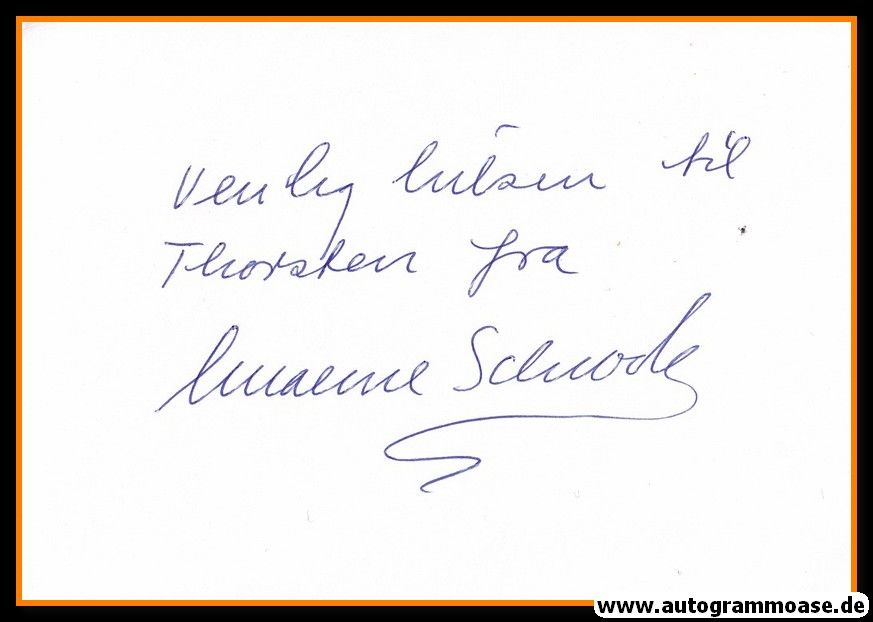 Venlig hilsen til
Thorsten fra
www.autogrammoase.de